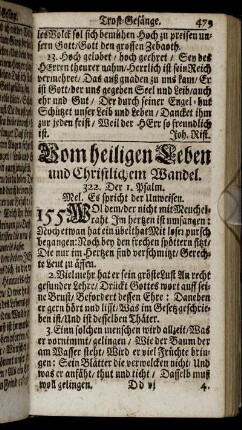 Trost-Gesänge. 479
les Volck sol sich bemühen Hoch zu preisen un-
sern Gott/ Gott den grossen Zebaoth.
13. Hoch gelobet/ hoch geehrt/ Sey des
HErren theurer nahm/ Herrlich ist sein Reich
vermehret/ Das auß gnaden zu uns kam/ Er
ist Gott/ der uns gegeben Seel und Leib/ auch
ehr und Gut/ Der durch seiner Engel-hut
Schützet unser Leib und Leben/ Dancket ihm
zur jeden frist/ Weil der HErr so freundlich
ist. Joh. Rist.
Vom heiligen Leben
und Christlichem Wandel.
322. Der 1. Psalm.
Mel. Es spricht der Unweisen.
155 WOl dem/ der nicht mit
raht Im hertzen ist umfangen:
Noch etwan hat ein übelthat Mit loser pursch
begangen: Noch bey den frechen spöttern sitzt
Die nur im hertzen sind verschmitzt/ Gerech-
te Leut zu äffen.
2. Vielmehr hat er sein gröste Lust An recht
gesunder Lehre/ Drückt Gottes wort auff sei-
ne Brust/ Befordert dessen Ehre: Daneben
er gern hört und list/ Was im Gesetz geschrie-
ben ist/ Und ist desselben Thäter.
3. Einn solchen menschen wird allzeit/ Was
er vornimmt/ gelingen/ Wie der Baum der
am Wasser steht/ Wird er viel Früchte brin-
gen: Sein Blätter die verwelcken nicht/ Und
was er anfäht/ thut und ticht/ Dasselb muß
wol gelingen. Dd vj 4.